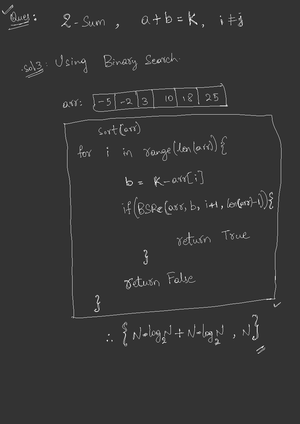 Ques: 2-Sum, a+b=K, i≠j
Sol3: Using Binary Search.
arr: -5 -2 3 10 18 25
sort(arr)
for i in range(len(arr)){
b = K-arr[i]
if(BSRec(arr, b, i+1, len(arr)-1)){
return True
}
return False
}
∴ {N*log₂N + N*log₂N, N}